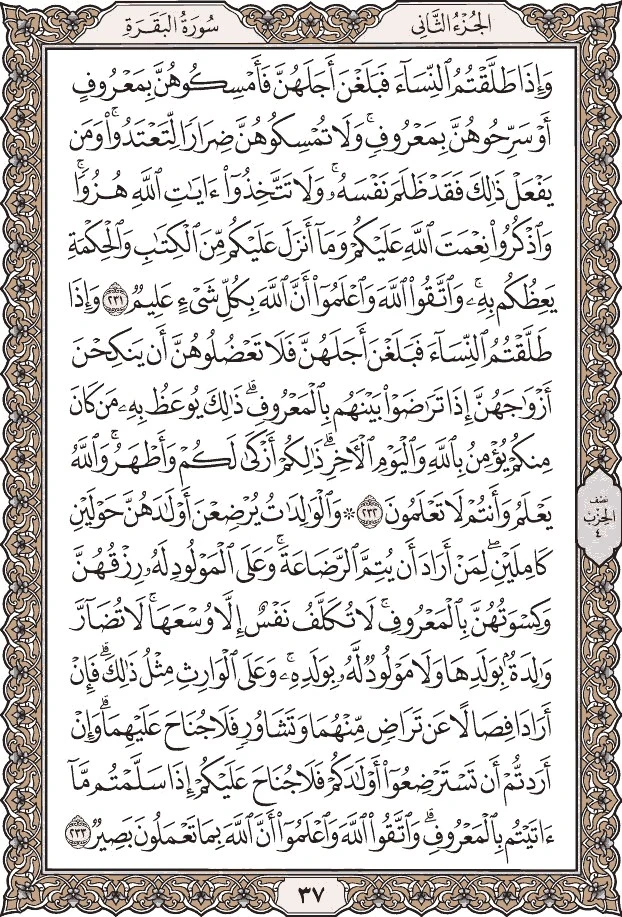 الجُزْءُ الثَّانِي
سُورَةُ البَقَرَةِ
وَإِذَا طَلَّقْتُمُ ٱلنِّسَآءَ فَبَلَغْنَ أَجَلَهُنَّ فَأَمْسِكُوهُنَّ بِمَعْرُوفٍ
أَوْ سَرِّحُوهُنَّ بِمَعْرُوفٍۚ وَلَا تُمْسِكُوهُنَّ ضِرَارًا لِّتَعْتَدُوا۟ۚ وَمَن
يَفْعَلْ ذَٰلِكَ فَقَدْ ظَلَمَ نَفْسَهُۥۚ وَلَا تَتَّخِذُوٓا۟ ءَايَـٰتِ ٱللَّهِ هُزُوًاۚ
وَٱذْكُرُوا۟ نِعْمَتَ ٱللَّهِ عَلَيْكُمْ وَمَآ أَنزَلَ عَلَيْكُم مِّنَ ٱلْكِتَـٰبِ وَٱلْحِكْمَةِ
يَعِظُكُم بِهِۦۚ وَٱتَّقُوا۟ ٱللَّهَ وَٱعْلَمُوٓا۟ أَنَّ ٱللَّهَ بِكُلِّ شَىْءٍ عَلِيمٌ ٢٣١ وَإِذَا
طَلَّقْتُمُ ٱلنِّسَآءَ فَبَلَغْنَ أَجَلَهُنَّ فَلَا تَعْضُلُوهُنَّ أَن يَنكِحْنَ
أَزْوَٰجَهُنَّ إِذَا تَرَٰضَوْا۟ بَيْنَهُم بِٱلْمَعْرُوفِۗ ذَٰلِكَ يُوعَظُ بِهِۦ مَن كَانَ
مِنكُمْ يُؤْمِنُ بِٱللَّهِ وَٱلْيَوْمِ ٱلْـَٔاخِرِۗ ذَٰلِكُمْ أَزْكَىٰ لَكُمْ وَأَطْهَرُۚ وَٱللَّهُ
يَعْلَمُ وَأَنتُمْ لَا تَعْلَمُونَ ٢٣٢ ۞ وَٱلْوَٰلِدَٰتُ يُرْضِعْنَ أَوْلَـٰدَهُنَّ حَوْلَيْنِ
كَامِلَيْنِۖ لِمَنْ أَرَادَ أَن يُتِمَّ ٱلرَّضَاعَةَۚ وَعَلَى ٱلْمَوْلُودِ لَهُۥ رِزْقُهُنَّ
وَكِسْوَتُهُنَّ بِٱلْمَعْرُوفِۚ لَا تُكَلَّفُ نَفْسٌ إِلَّا وُسْعَهَاۚ لَا تُضَآرَّ
وَٰلِدَةٌۢ بِوَلَدِهَا وَلَا مَوْلُودٌ لَّهُۥ بِوَلَدِهِۦۚ وَعَلَى ٱلْوَارِثِ مِثْلُ ذَٰلِكَۗ فَإِنْ
أَرَادَا فِصَالًا عَن تَرَاضٍ مِّنْهُمَا وَتَشَاوُرٍ فَلَا جُنَاحَ عَلَيْهِمَاۗ وَإِنْ
أَرَدتُّمْ أَن تَسْتَرْضِعُوٓا۟ أَوْلَـٰدَكُمْ فَلَا جُنَاحَ عَلَيْكُمْ إِذَا سَلَّمْتُم مَّآ
ءَاتَيْتُم بِٱلْمَعْرُوفِۗ وَٱتَّقُوا۟ ٱللَّهَ وَٱعْلَمُوٓا۟ أَنَّ ٱللَّهَ بِمَا تَعْمَلُونَ بَصِيرٌ ٢٣٣
نِصْف
الحِزْب
٤
٣٧